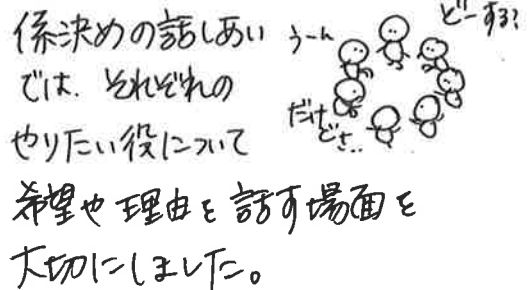 係決めの話しあい
では、それぞれの
やりたい役について
希望や理由を話す場面を
大切にしました。
うーん
どーする?
だけ
どさ..